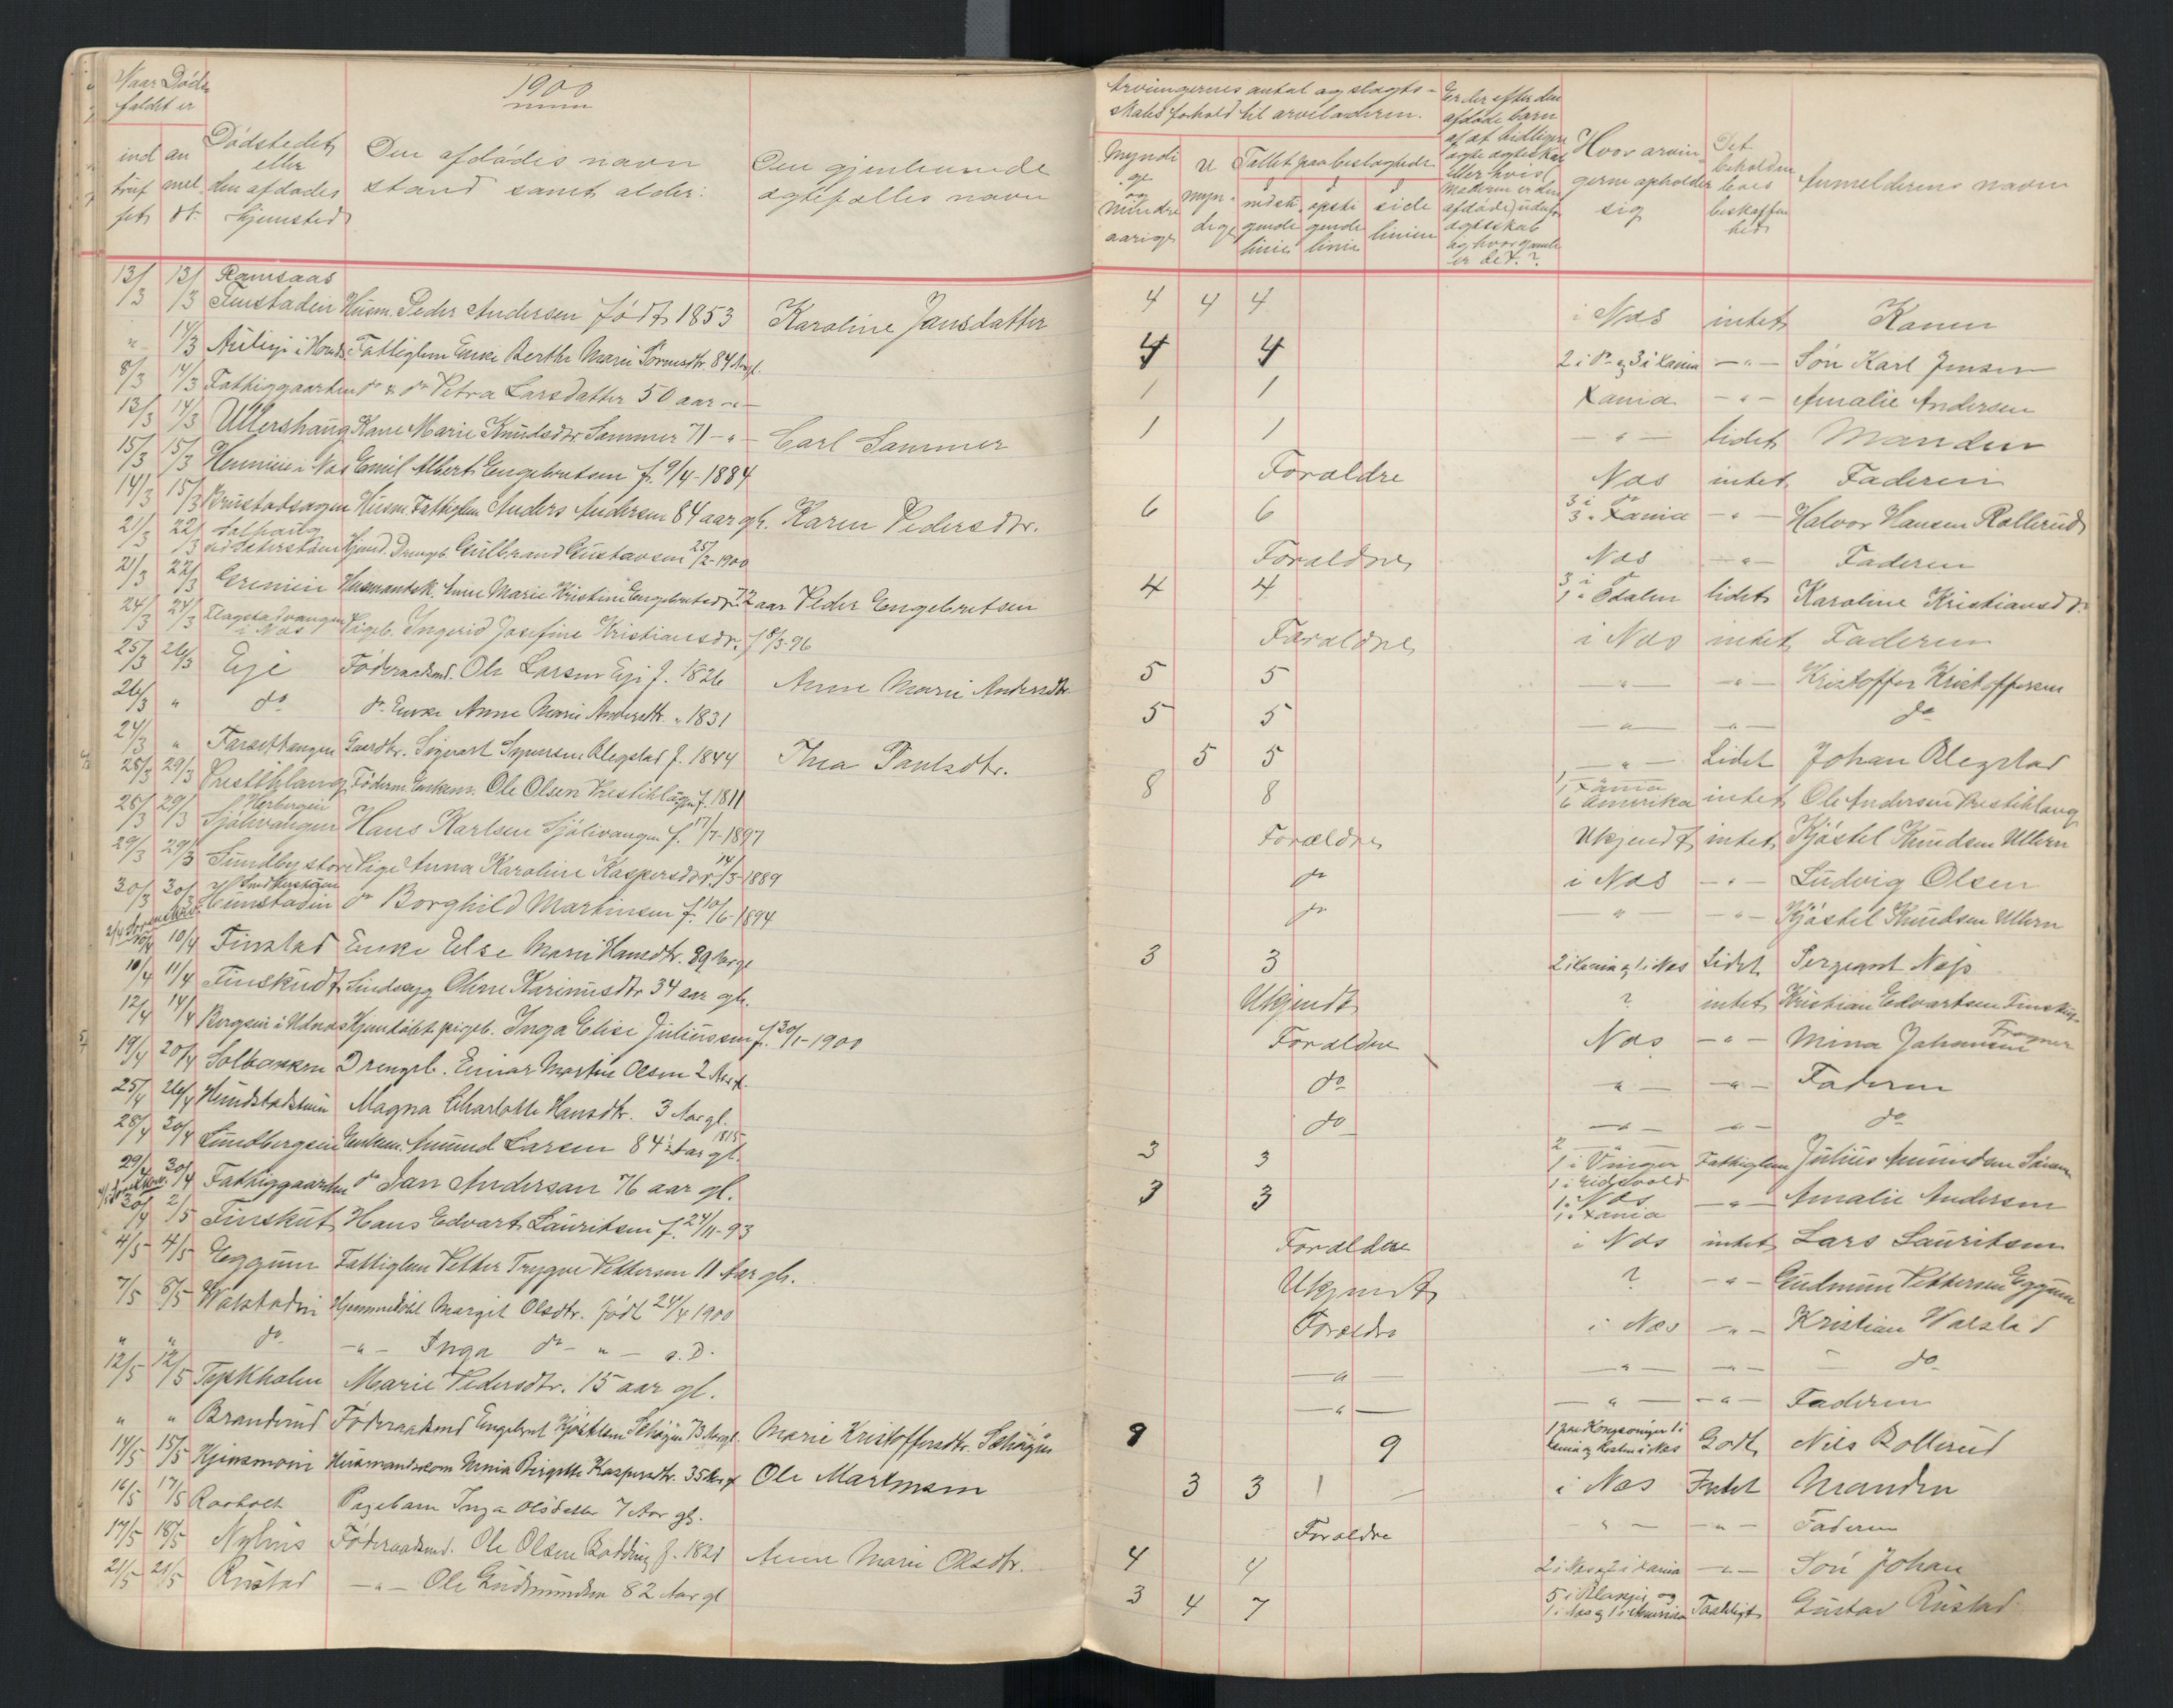 Naar Døds-
faldet er
1900
ind
truf
fet
an
mel
dt.
Dødstedet
eller
den afdødes
hjemsted
Den afdødes navn
stand samt alder:
Den gjenlevende
ægtefælles navn
Arvingernes antal og slægts-
skabsforhold til arveladeren.
Myndi
ge
og
mindre
aarige
U
myn-
dige
Tallet paa beslægtede
i
nedsti
gende
linie
i
opsti
gende
linie
i
side
linien
Er der efter den
afdøde barn
Hvor arvin
gerne opholder
sig
Det
beholdne
boes
beskaffen
het
Anmelderens navn
13/3 13/3 Ramsaas
Finstaden Husm. Peder Andersen født 1853 Karoline Jansdatter 4 4 4 i Næs intet Konen
" 14/3 Fattiglem Enke Berthe Marie 84 Aar gl. 4 4 2 i Do og 3 i Xania -"- Søn Karl Jensen
8/3 14/3 Fattiggaarden do & do Petra Larsdatter 50 aar -"- 1 1 Xania -"- Amalie Andersen
13/3 14/3 Ullershaug Kone Marie Knudsdtr Sammer 71 -"- Carl Sammer 1 1 -"- lidet Manden
15/3 15/3 i Næs Emil Albert Engebretsen f. 9/4-1884 Forældre Næs intet Faderen
14/3 15/3 Brustadsagen Husm. Fattiglem Anders Andersen 84 aar gl. Karen Pedersdtr. 6 6 3 i do 3 " Xania -"- Halvor Hansen Rollerud
21/3 22/3 Gulbrand Gustavsen 25/2-1900 Forældre Næs -"- Faderen
21/3 22/3 Grenien Husmandsk. Anne Marie Kristine Engebretsdtr. 72 aar Peder Engebretsen 4 4 3 i 1 " Odalen lidet Karoline Kristiansdtr.
24/3 24/3 Slagstadvangen i Næs Pigeb. Ingerid Josefine Kristiansdtr. f 8/3-96 Forældre i Næs intet Faderen
25/3 26/3 Eje Føderaadsmd. Ole Larsen Eje f. 1826 Anne Marie Andersdtr 5 5 -"- -"- Kristoffer Kristoffersen
26/3 " do do Enke Anne Marie Andersdtr. " 1831 5 5 -"- -"- do
24/3 " Farsethangen Gaardbr. Sigvart Syversen Blegstad f. 1844 Thea Paulsdtr. 5 5 -"- Lidet Johan Blegstad
28/3 29/3 Prestihlaug Føderm. Enkem. Ole Olsen Prestihlaug f. 1811 8 8 1 Xania 6 Amerika intet Ole Andersen Prestihlaug
28/3 29/3 Herbergen Sjølivangen Hans Karlsen Sjølivangen f. 17/7-1897 Forældre Ukjendt intet Kjøstel Knudsen Ullern
29/3 29/3 Sundby store Pige Anna Karoline Kaspersdtr. 14/3-1889 do i Næs -"- Ludvig Olsen
30/3 30/3 Finstadin do Borghild Martinsen f. 10/6-1894 do -"- -"- Kjøstel Knudsen Ullern
10/4 Finstad Enke Else Marie Hansdtr. 89 Aar gl 3 3 2 i Xania og 1 i Næs Lidet Sergeant Næss
10/4 11/4 Finskudt Sindssyg Oline Karinusdtr 34 aar gl. Ukjendt ? intet Kristian Edvartsen Finskud
12/4 14/4 Bergsin i Udnæs Hjemdøbt pigeb. Inga Elise Juliussen f. 30/1-1900 Forældre Næs -"- Mina Johansen
19/4 20/4 Solbakken Drengeb. Einar Martin Olsen 2 Aar gl. do -"- -"- Faderen
25/4 26/4 Hundstadstuen Magna Charlotte Hansdtr. 3 Aar gl. do -"- -"- do
28/4 30/4 Sundbergeie Enkem. Amund Larsen 84 Aar gl. 1815 3 3 2 -"- 1 i Vinger Fattiglem Julius Amundsen
29/4 30/4 Fattiggaarden do Jan Andersen 76 aar gl. 3 3 1 i Eidsvold 1 i Næs 1 i Xania -"- Amalie Andersen
30/4 2/5 Finskut Hans Edvart Lauritsen f. 24/11-93 Forældre i Næs intet Lars Lauritsen
4/5 4/5 Eggum Fattiglem Petter Trygve Pettersen 11 Aar gl. Ukjendt ? -"- Gudmun Pettersen Eggum
7/5 8/5 Walstadin Hjemmedøbt Margit Olsdtr. født 24/4 1900 Forældre i Næs -"- Kristian Walstad
" " do -"- Inga do -"- s.D. -"- -"- -"- do
12/5 12/5 Tyskholen Marie Pedersdtr. 15 aar gl. -"- -"- -"- Faderen
" " Branderud Føderaadsmd Engebret Kjøstelsen 73 Aar gl. Marie Kristoffersdtr. 9 9 Godt Nils Rollerud
14/5 15/5 Hjinsmoin Husmandskone Birgitte Kaspersdtr. 35 Aar gl Ole Martinsen 3 3 1 i Næs Intet Manden
16/5 17/5 Raaholt Pigebarn Inga Olsdatter 7 Aar gl. Forældre -"- -"- Faderen
17/5 18/5 Nyhus Føderaadsmd. Ole Olsen Bødding f. 1821 Anne Marie Olsdtr. 4 4 2 i Næs og 2 i Xania -"- Søn Johan
21/5 21/5 Rustad -"- Ole Gudmundsen 82 Aar gl 3 4 7 5 i Blakjer og 1 i Næs og 1 i Amerika Taaleligt Gustav Rustad